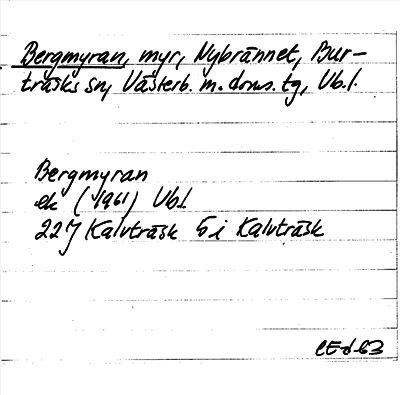 Bergmyran, myr, Nybrännet, Bur-
träsks sn, Västerb. m. doms. tg, Vb. l.
Bergmyran
ek (1961) Vb l.
22J Kalvträsk 5i Kalvträsk